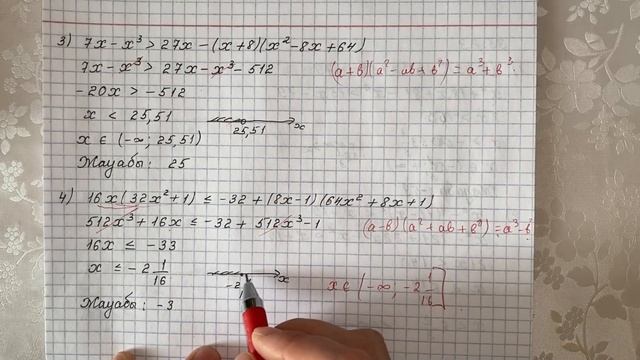 3) 7x - x³ > 27x - (x+8)(x² - 8x + 64)
7x - x³ > 27x - x³ - 512 (a+b)(a² - ab + b²) = a³ + b³
-20x > -512
x < 25,51
25,51 x
x ∈ (-∞; 25,51)
Жауабы: 25
4) 16x(32x² + 1) ≤ -32 + (8x-1)(64x² + 8x + 1)
512x³ + 16x ≤ -32 + 512x³ - 1 (a-b)(a² + ab + b²) = a³ - b³
16x ≤ -33
x ≤ -2 1/16 x x ∈ (-∞, -2 1/16]
-2
Жауабы: -3